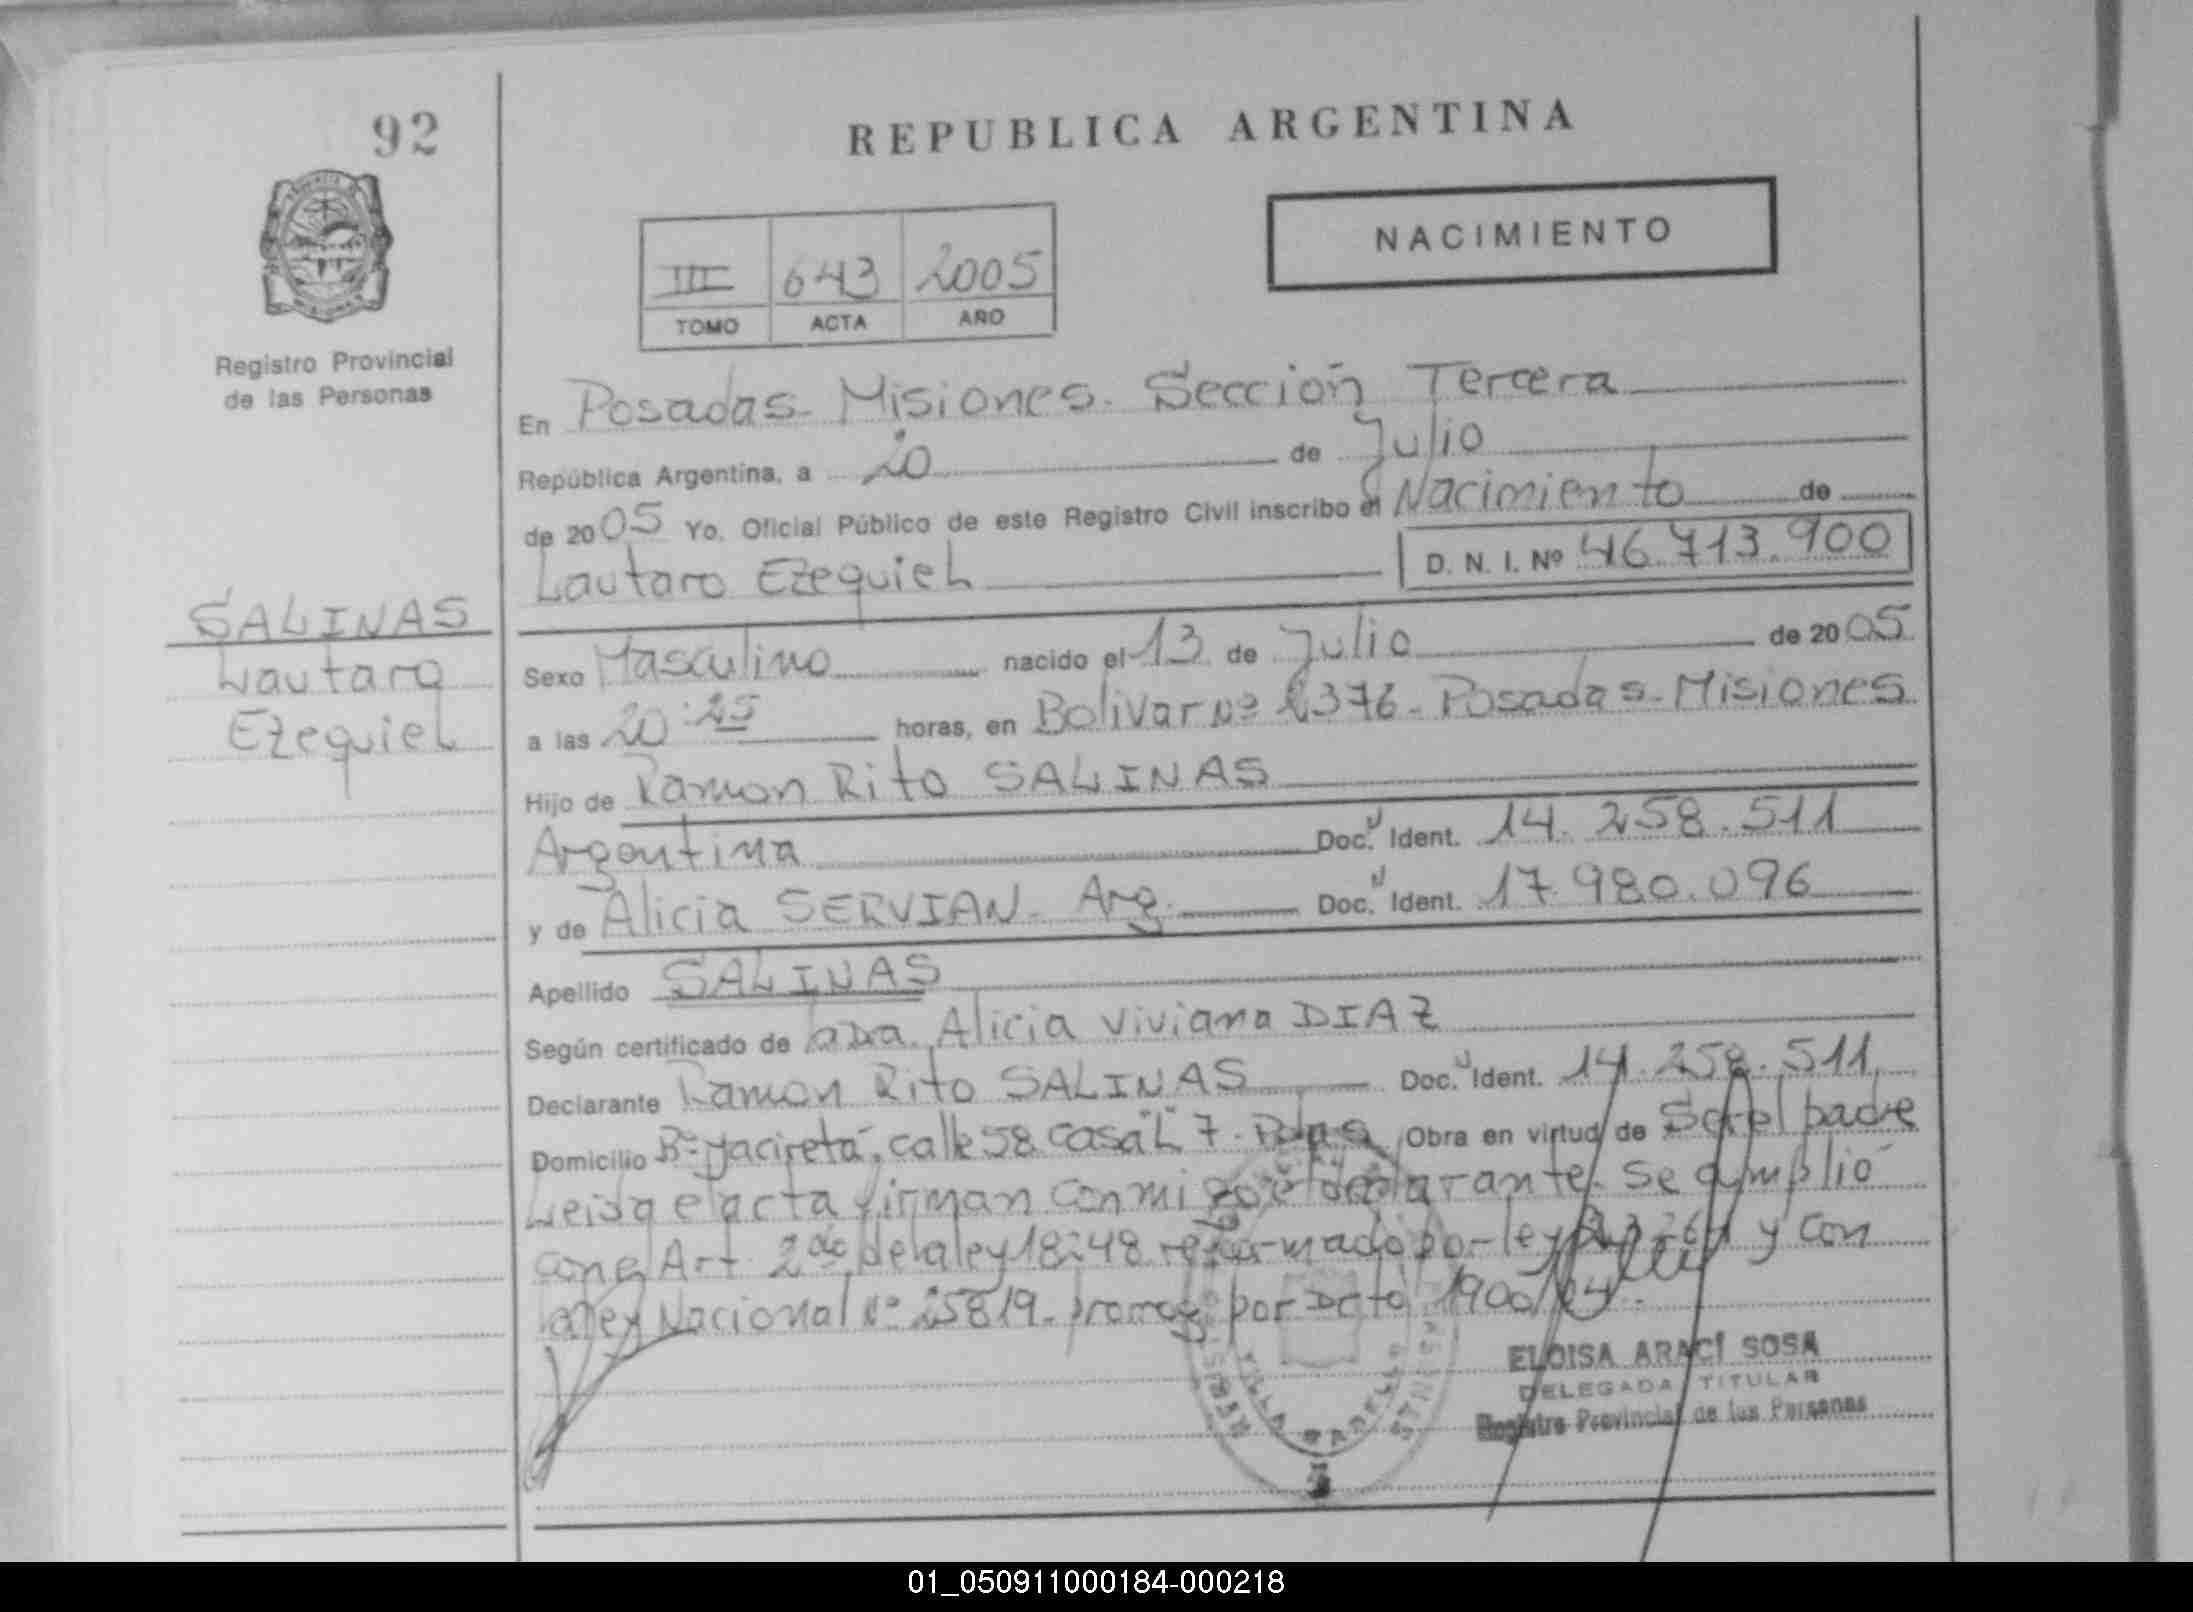 92
REPUBLICA ARGENTINA
NACIMIENTO
III 643 2005
TOMO ACTA AÑO
Registro Provincial
de las Personas
En Posadas - Misiones. Sección Tercera
República Argentina, a 20 de Julio
de 2005 Yo, Oficial Público de este Registro Civil inscribo el Nacimiento de
Lautaro Ezequiel D. N. I. Nº 46.713.900
SALINAS
Lautaro
Ezequiel
Sexo Masculino nacido el 13 de Julio de 2005
a las 20:25 horas, en Bolivar Nº 1376 - Posadas - Misiones
Hijo de Ramon Rito SALINAS
Argentina Doc. Ident. 14.258.511
y de Alicia SERVIAN - Arg. Doc. Ident. 17.980.096
Apellido SALINAS
Según certificado de la Dra. Alicia Viviana DIAZ
Declarante Ramon Rito SALINAS Doc. Ident. 14.258.511
Domicilio Bº Yacireta, calle 58 casa "L" 7 - Pdas Obra en virtud de Ser el padre
Leida el acta firman conmigo el declarante. Se cumplió
con el Art. 2do de la ley 18248 reformado por ley y con
la ley Nacional Nº 25819 - por Dcto 1900/04.
ELOISA ARACÍ SOSA
DELEGADA TITULAR
Registro Provincial de las Personas
VILLA
MISIONES
01_050911000184-000218